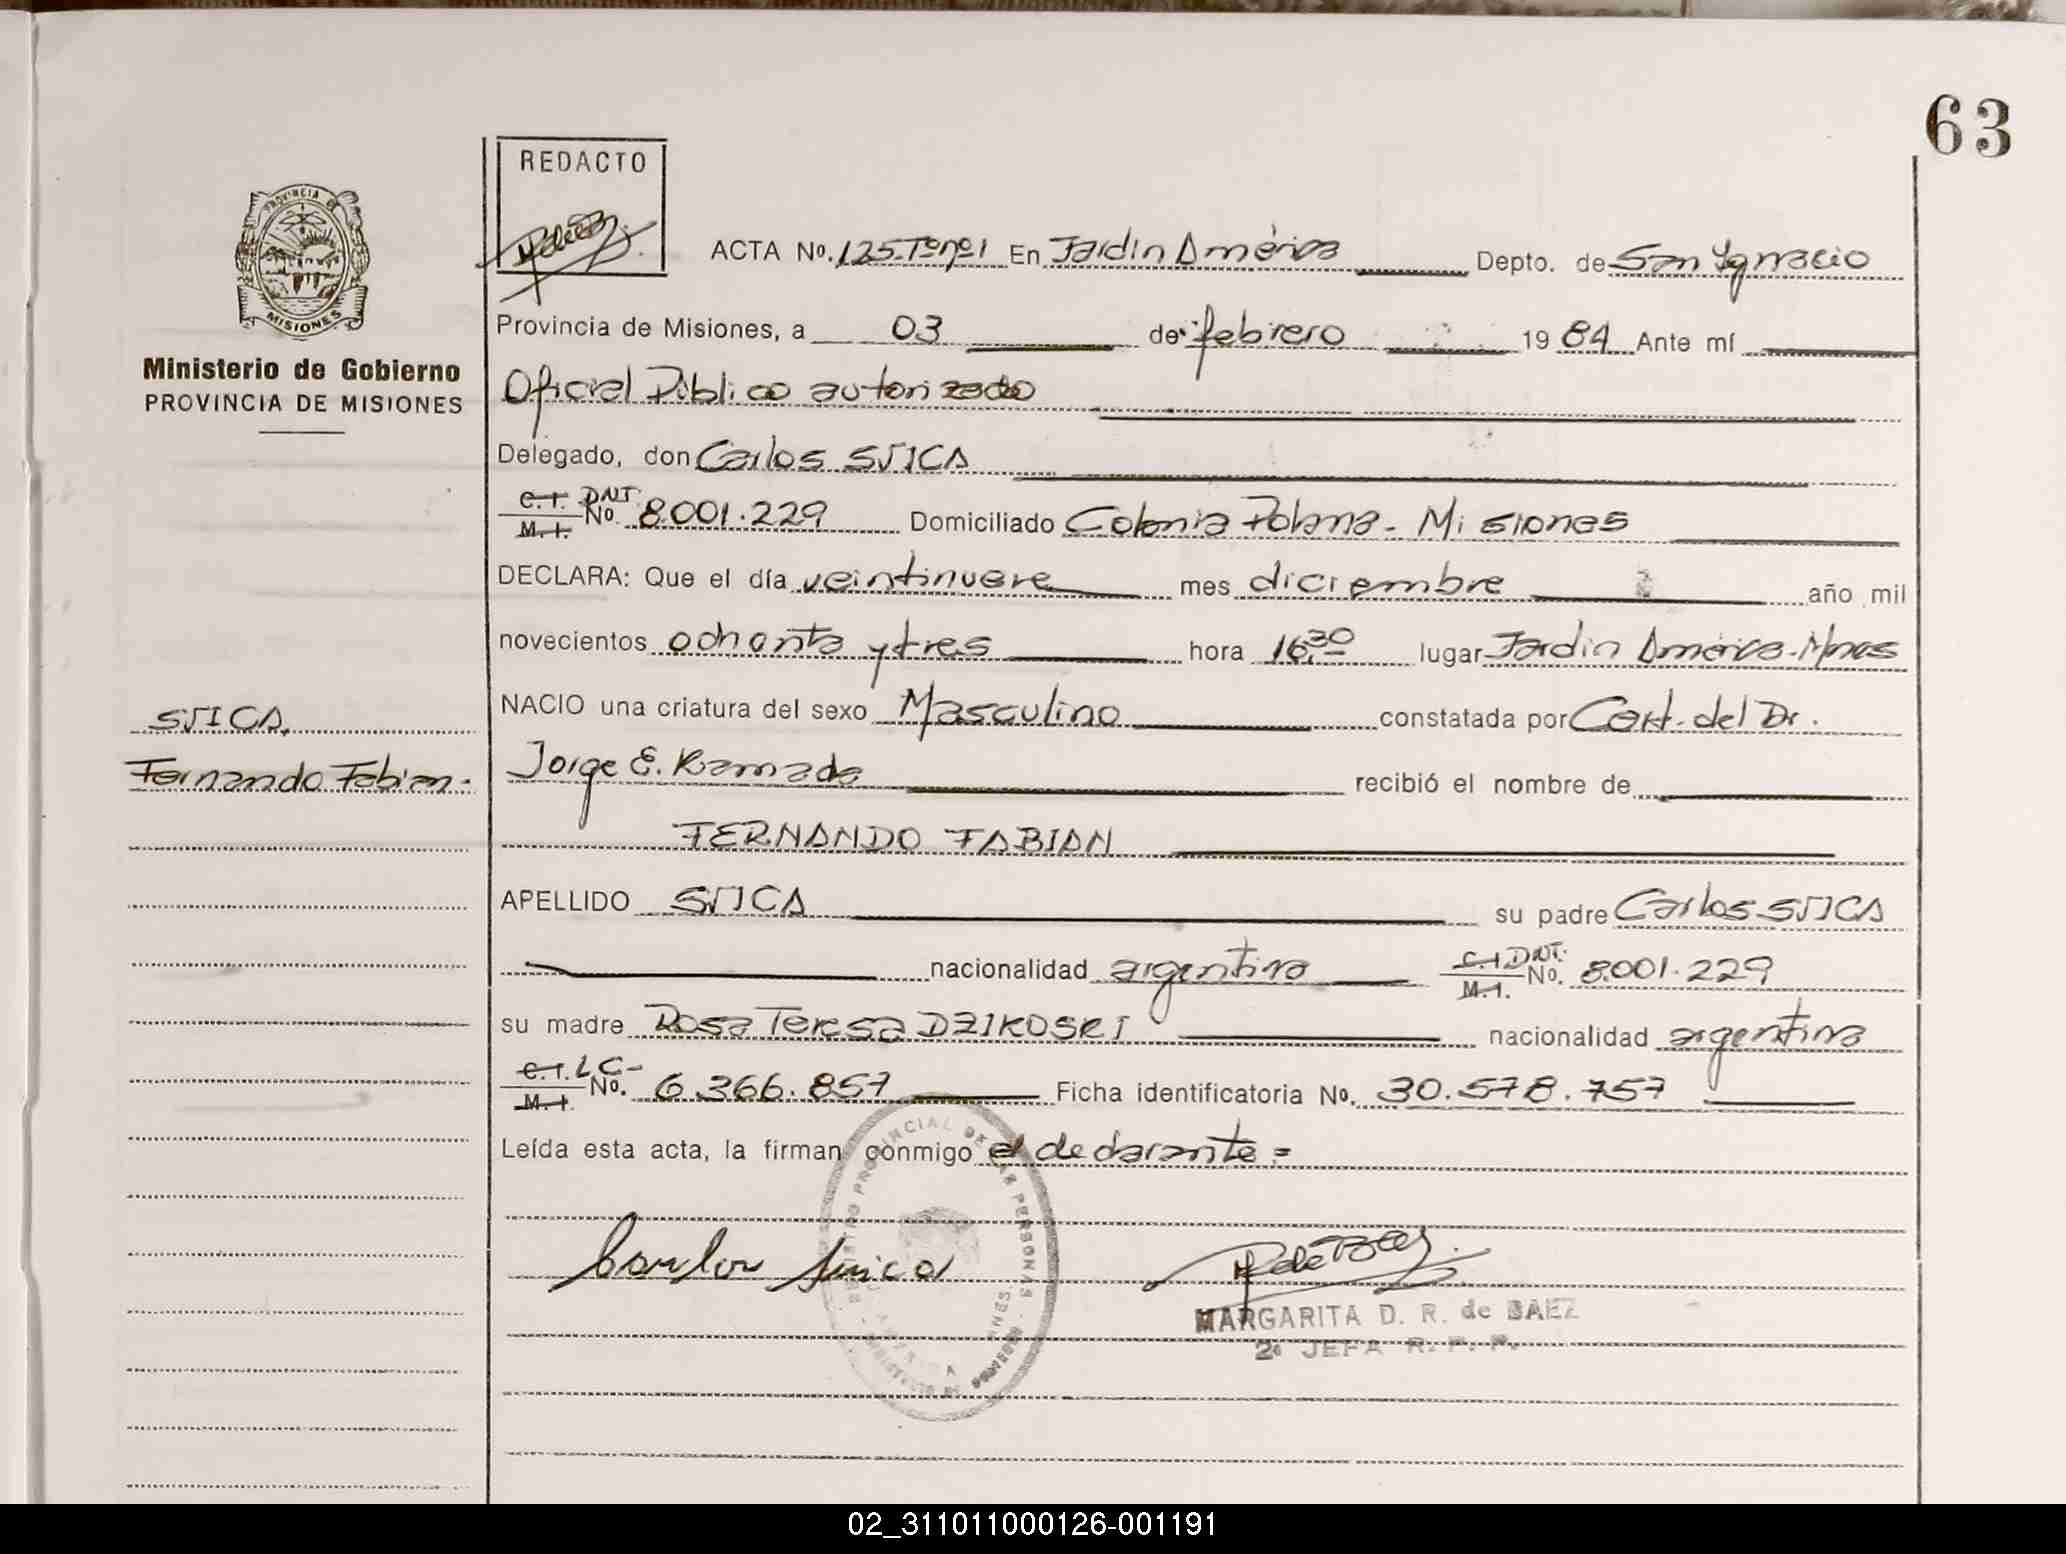 63
REDACTO
PROVINCIA DE
MISIONES
Ministerio de Gobierno
PROVINCIA DE MISIONES
ACTA No. 125-Tºnº1 En Jardin América Depto. de San Ignacio
Provincia de Misiones, a 03 de febrero 1984 Ante mí
Oficial Público autorizado
Delegado, don Carlos SJICA
C.I. DNI. M.I. No. 8.001.229 Domiciliado Colonia Polana - Misiones
DECLARA: Que el día veintinueve mes diciembre año mil
novecientos ochenta y tres hora 16,30 lugar Jardin América-Mnes
NACIO una criatura del sexo Masculino constatada por Cert. del Dr.
SJICA,
Fernando Fabian.
Jorge E. Ramada recibió el nombre de
FERNANDO FABIAN
APELLIDO SJICA su padre Carlos SJICA
nacionalidad argentina C.I. DNI. M.I. No. 8.001.229
su madre Rosa Teresa DZIKOSKI nacionalidad argentina
C.I. LC- M.I. No. 6.366.857 Ficha identificatoria No. 30.578.757
Leída esta acta, la firman conmigo el declarante =
MARGARITA D. R. de BAEZ
2º JEFA R. P. P.
02_311011000126-001191